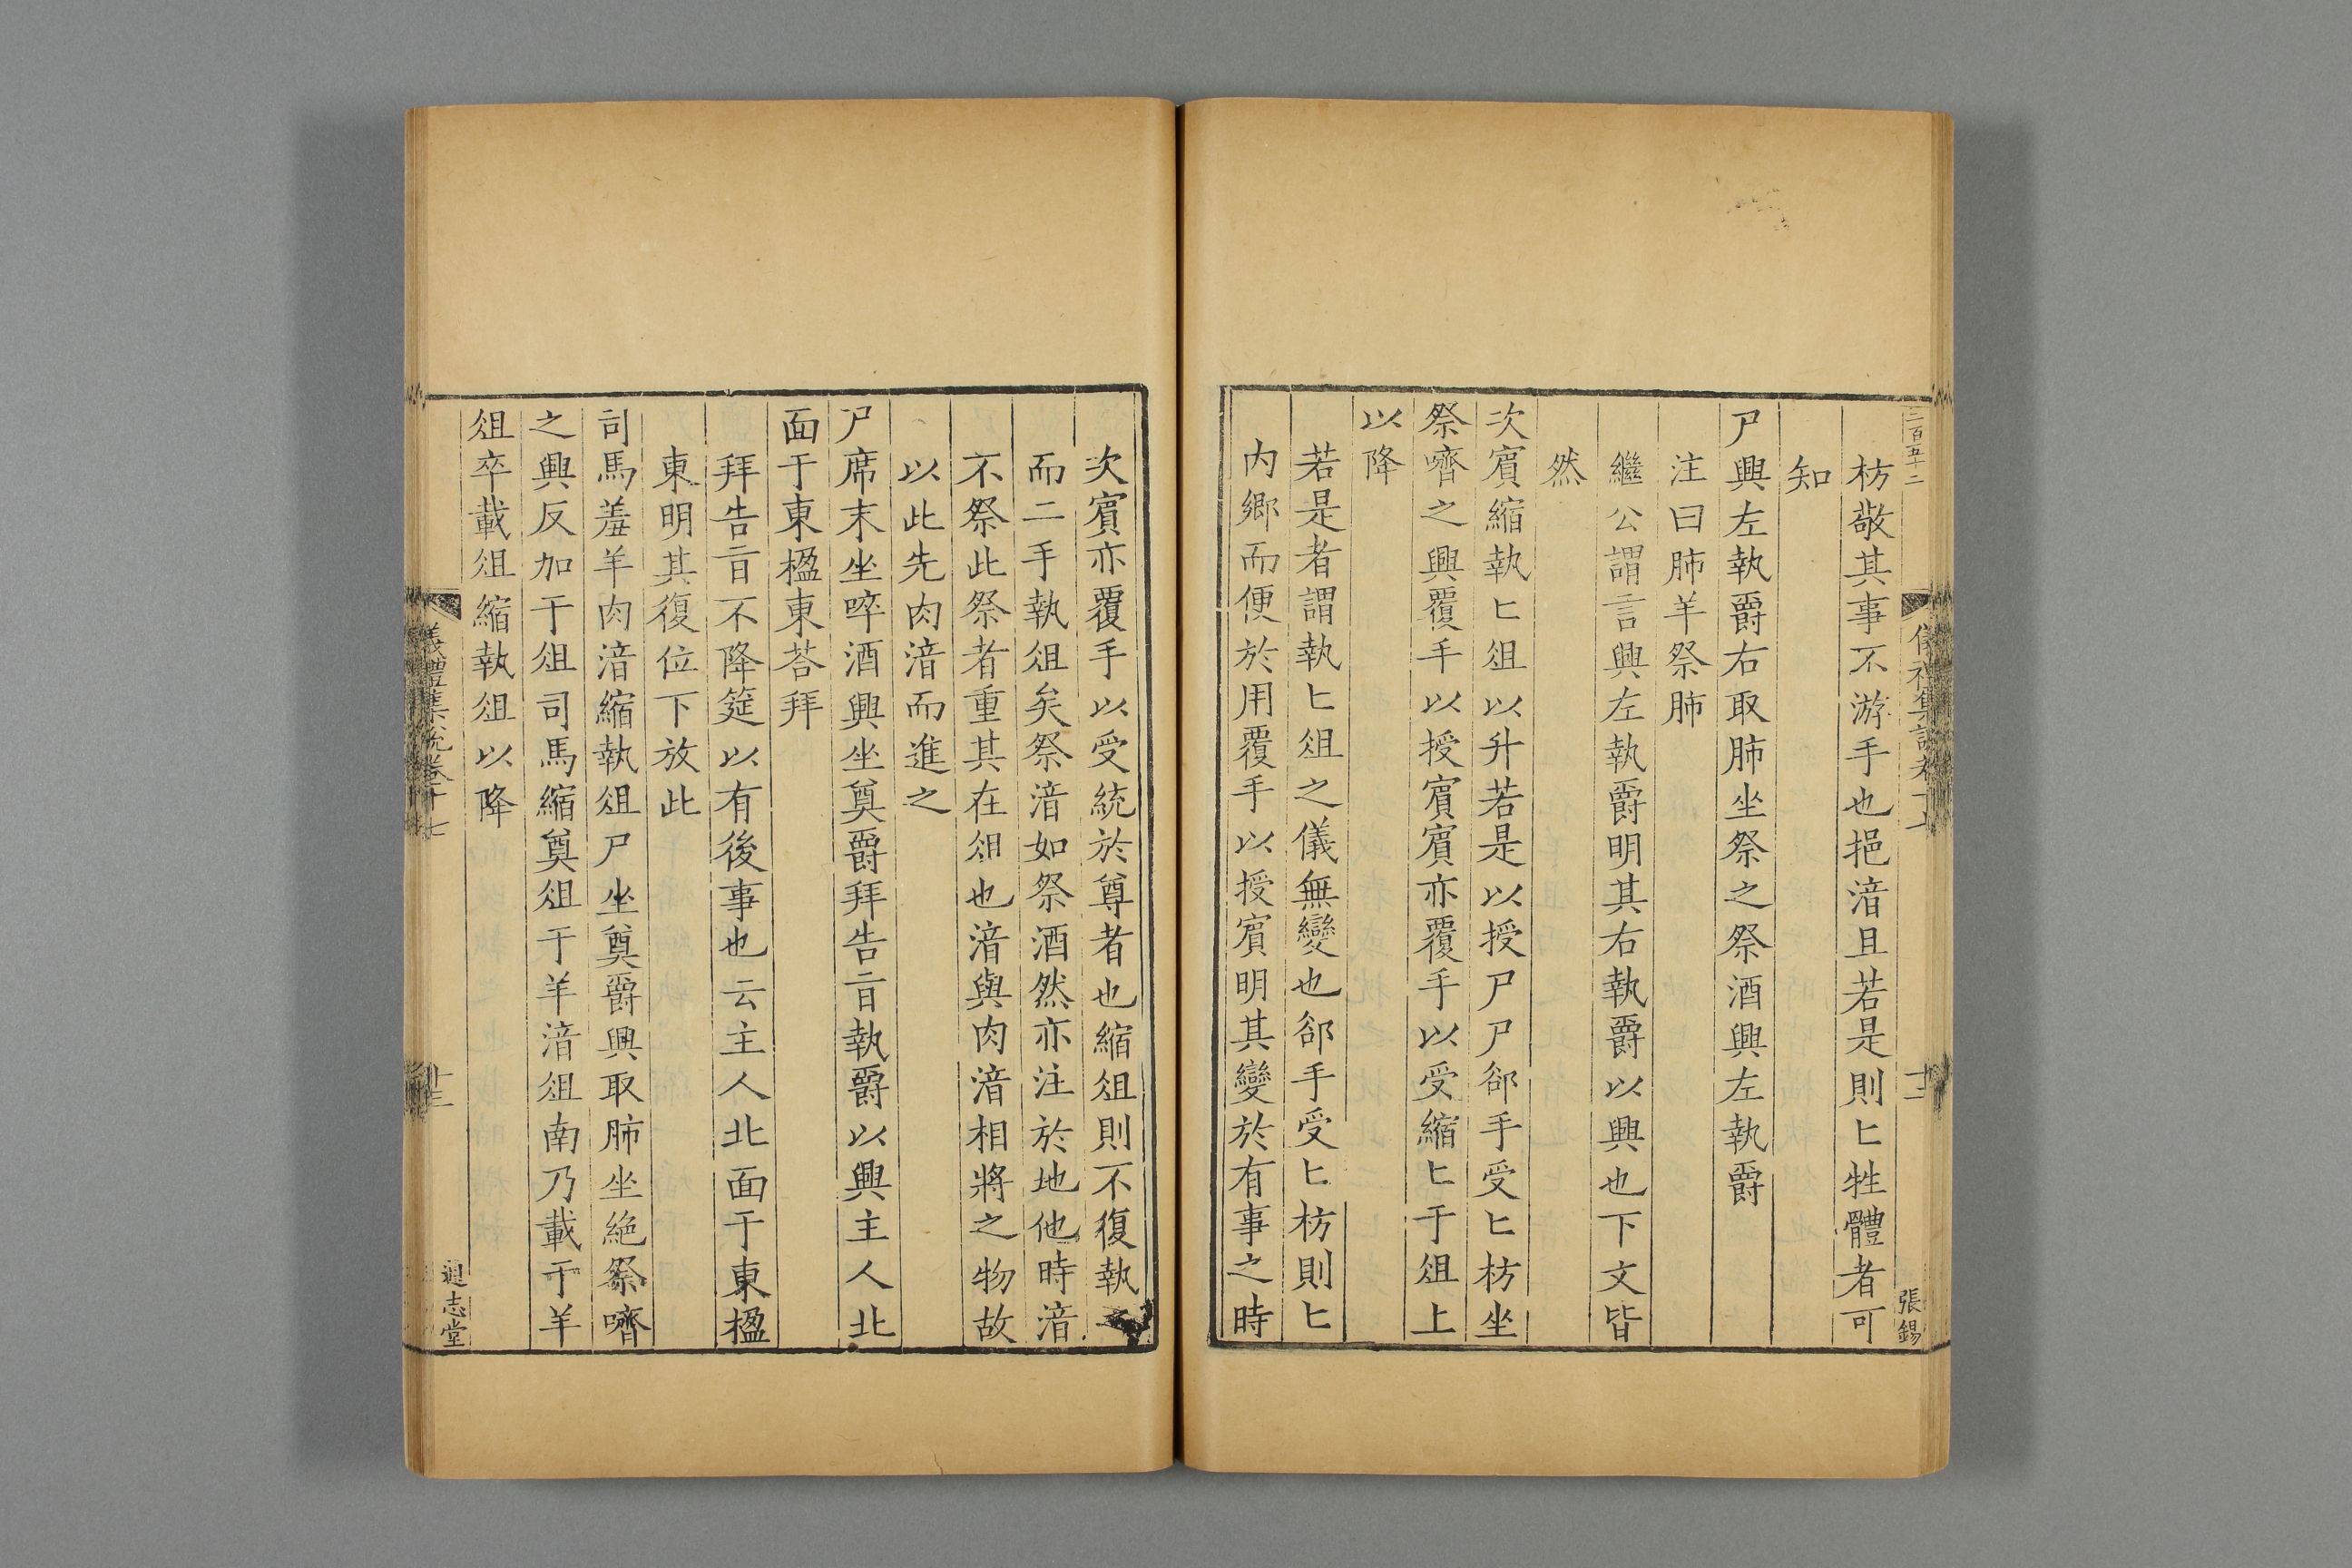 二百五十二
儀禮集說卷十七
十二
張錫
枋敬其事不游手也挹湆且若是則匕牲體者可
知
尸興左執爵右取肺坐祭之祭酒興左執爵
注曰肺羊祭肺
繼公謂言興左執爵明其右執爵以興也下文皆
然
次賔縮執匕俎以升若是以授尸尸郤手受匕枋坐
祭嚌之興覆手以授賔賔亦覆手以受縮匕于俎上
以降
若是者謂執匕俎之儀無變也郤手受匕枋則匕
内鄉而便於用覆手以授賔明其變於有事之時
次賔亦覆手以受統於尊者也縮俎則不復執
而二手執俎矣祭湆如祭酒然亦注於地他時湆
不祭此祭者重其在俎也湆與肉湆相將之物故
以此先肉湆而進之
尸席末坐啐酒興坐奠爵拜告㫖執爵以興主人北
面于東楹東荅拜
拜告㫖不降筵以有後事也云主人北面于東楹
東明其復位下放此
司馬羞羊肉湆縮執俎尸坐奠爵興取肺坐絶祭嚌
之興反加于俎司馬縮奠俎于羊湆俎南乃載于羊
俎卒載俎縮執俎以降
儀禮集說卷十七
十三
通志堂